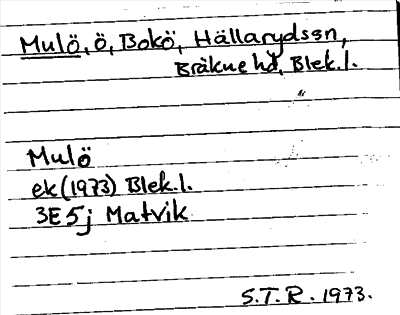 Mulö, ö, Bokö, Hällarydssn,
Bräkne hd, Blek.l.
Mulö
ek (1973) Blek.l.
3E5j Matvik
S.T.R. 1973.